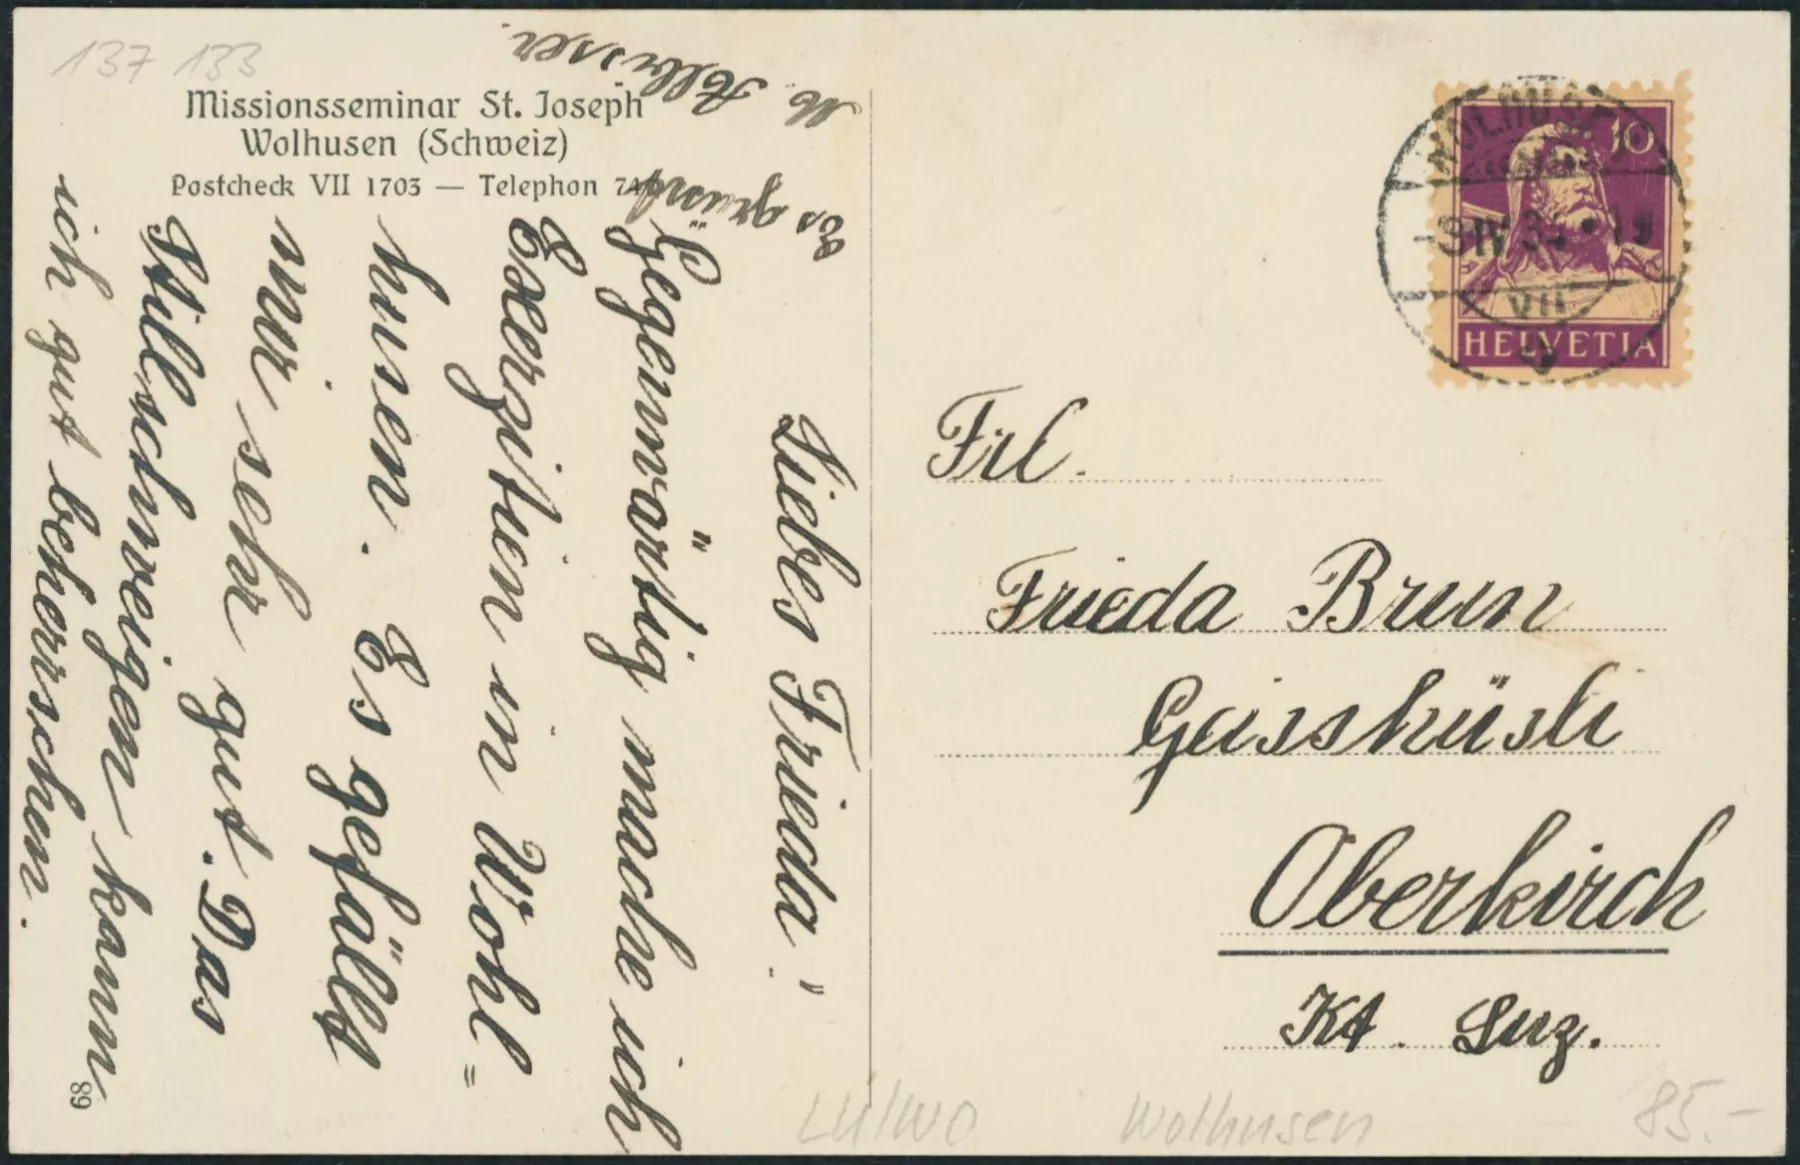 137 133
Missionsseminar St. Joseph
Wolhusen (Schweiz)
Postcheck VII 1703 — Telephon
Liebes Frieda!
Gegenwärtig mache ich
Exerzitien in Wohl=
husen. Es gefällt
mir sehr gut. Das
Stillschweigen kann
ich gut beherrschen.
Es grüsst
M.
68
WOLHUSEN
-9.IV.3 •19
VII
10
HELVETIA
Frl.
Frieda Brun
Gaisshüsli
Oberkirch
Kt. Luz.
LU/WO Wolhusen 85.-